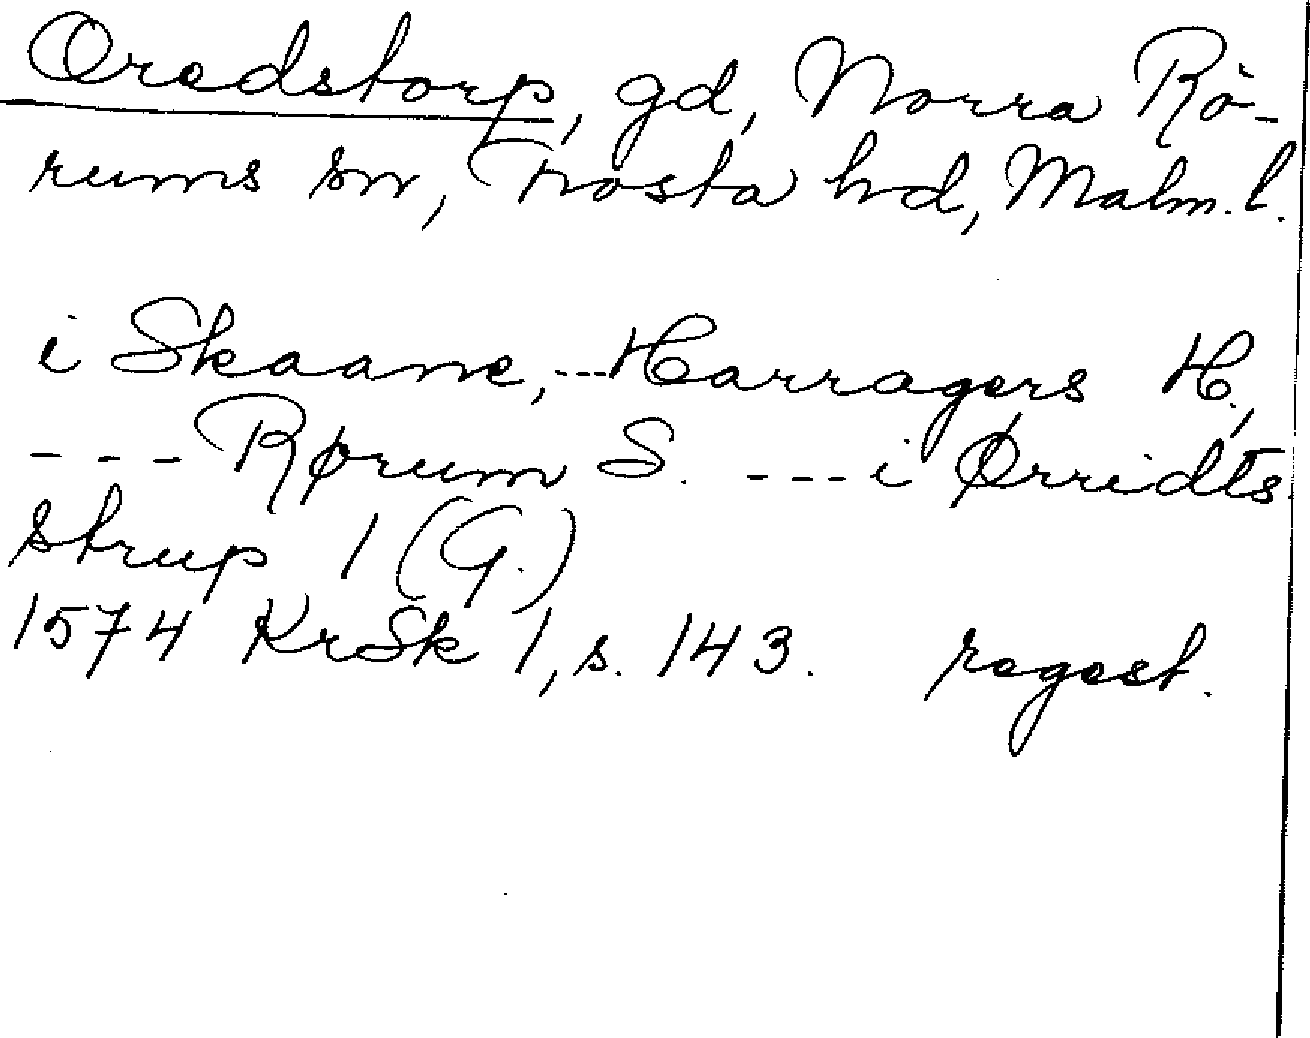 Oredstorp, gd, Norra Rö-
rums sn, Frosta hd, Malm. l.
i Skaane, --- Harragers H.,
--- Rørum S. --- i Ørridts
strup 1 (G.)
1574 KrSk 1, s. 143. regest.